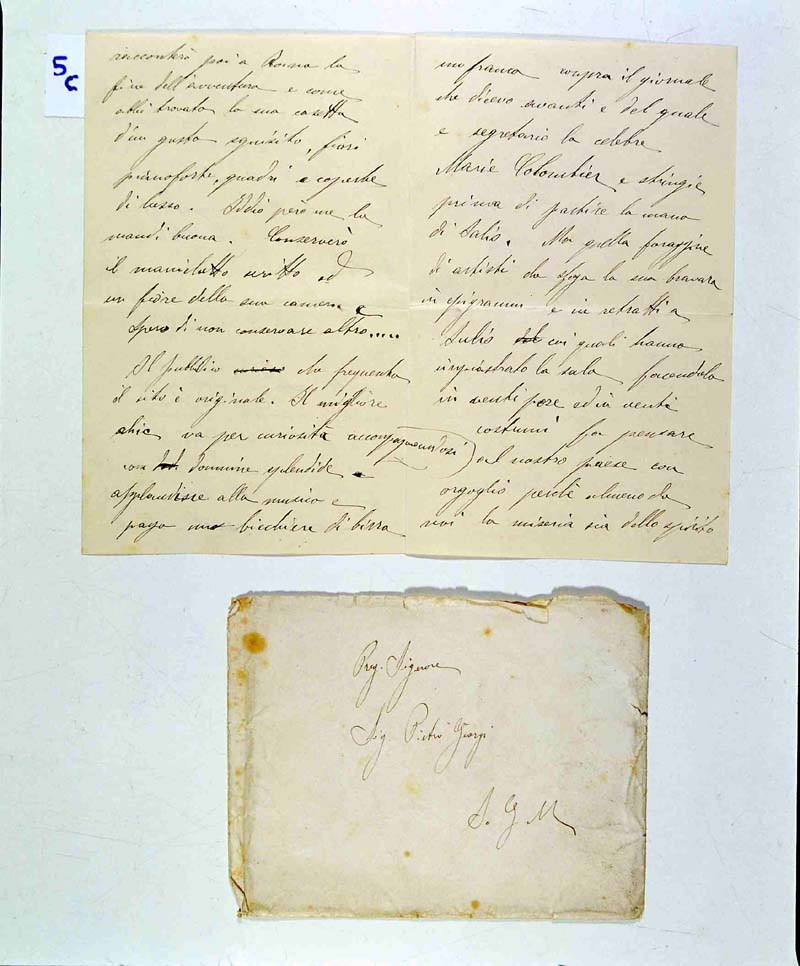 5c
racconterò poi a Roma la
fine dell'avventura e come
abbi trovata la sua casetta
d'un gusto squisito, fiori
pianoforte, quadri e coperte
di lusso. Iddio però me la
mandi buona. Conserverò
il manicotto scritto ed
un fiore della sua camera e
spero di non conservare altro.....
Il pubblico che frequenta
il sito è originale. Il migliore
chic va per curiosità accompagnandosi
con donnine splendide e
applaudisce alla musica e
paga un bicchiere di birra
un franco compra il giornale
che dicevo avanti e del quale
e segretario la celebre
Marie Colombier e stringe
prima di partire la mano
di Salis. Ma quella
di artisti che sfoga la sua bravura
in epigrammi e in ritratti a
Salis coi quali hanno
impiastrato la sala facendola
in venti pose ed in venti
costumi fa pensare
al nostro paese con
orgoglio perchè almeno da
noi la miseria sia dello spirito
Preg. Signore
Sig. Pietro Giorgi
S. G. M.